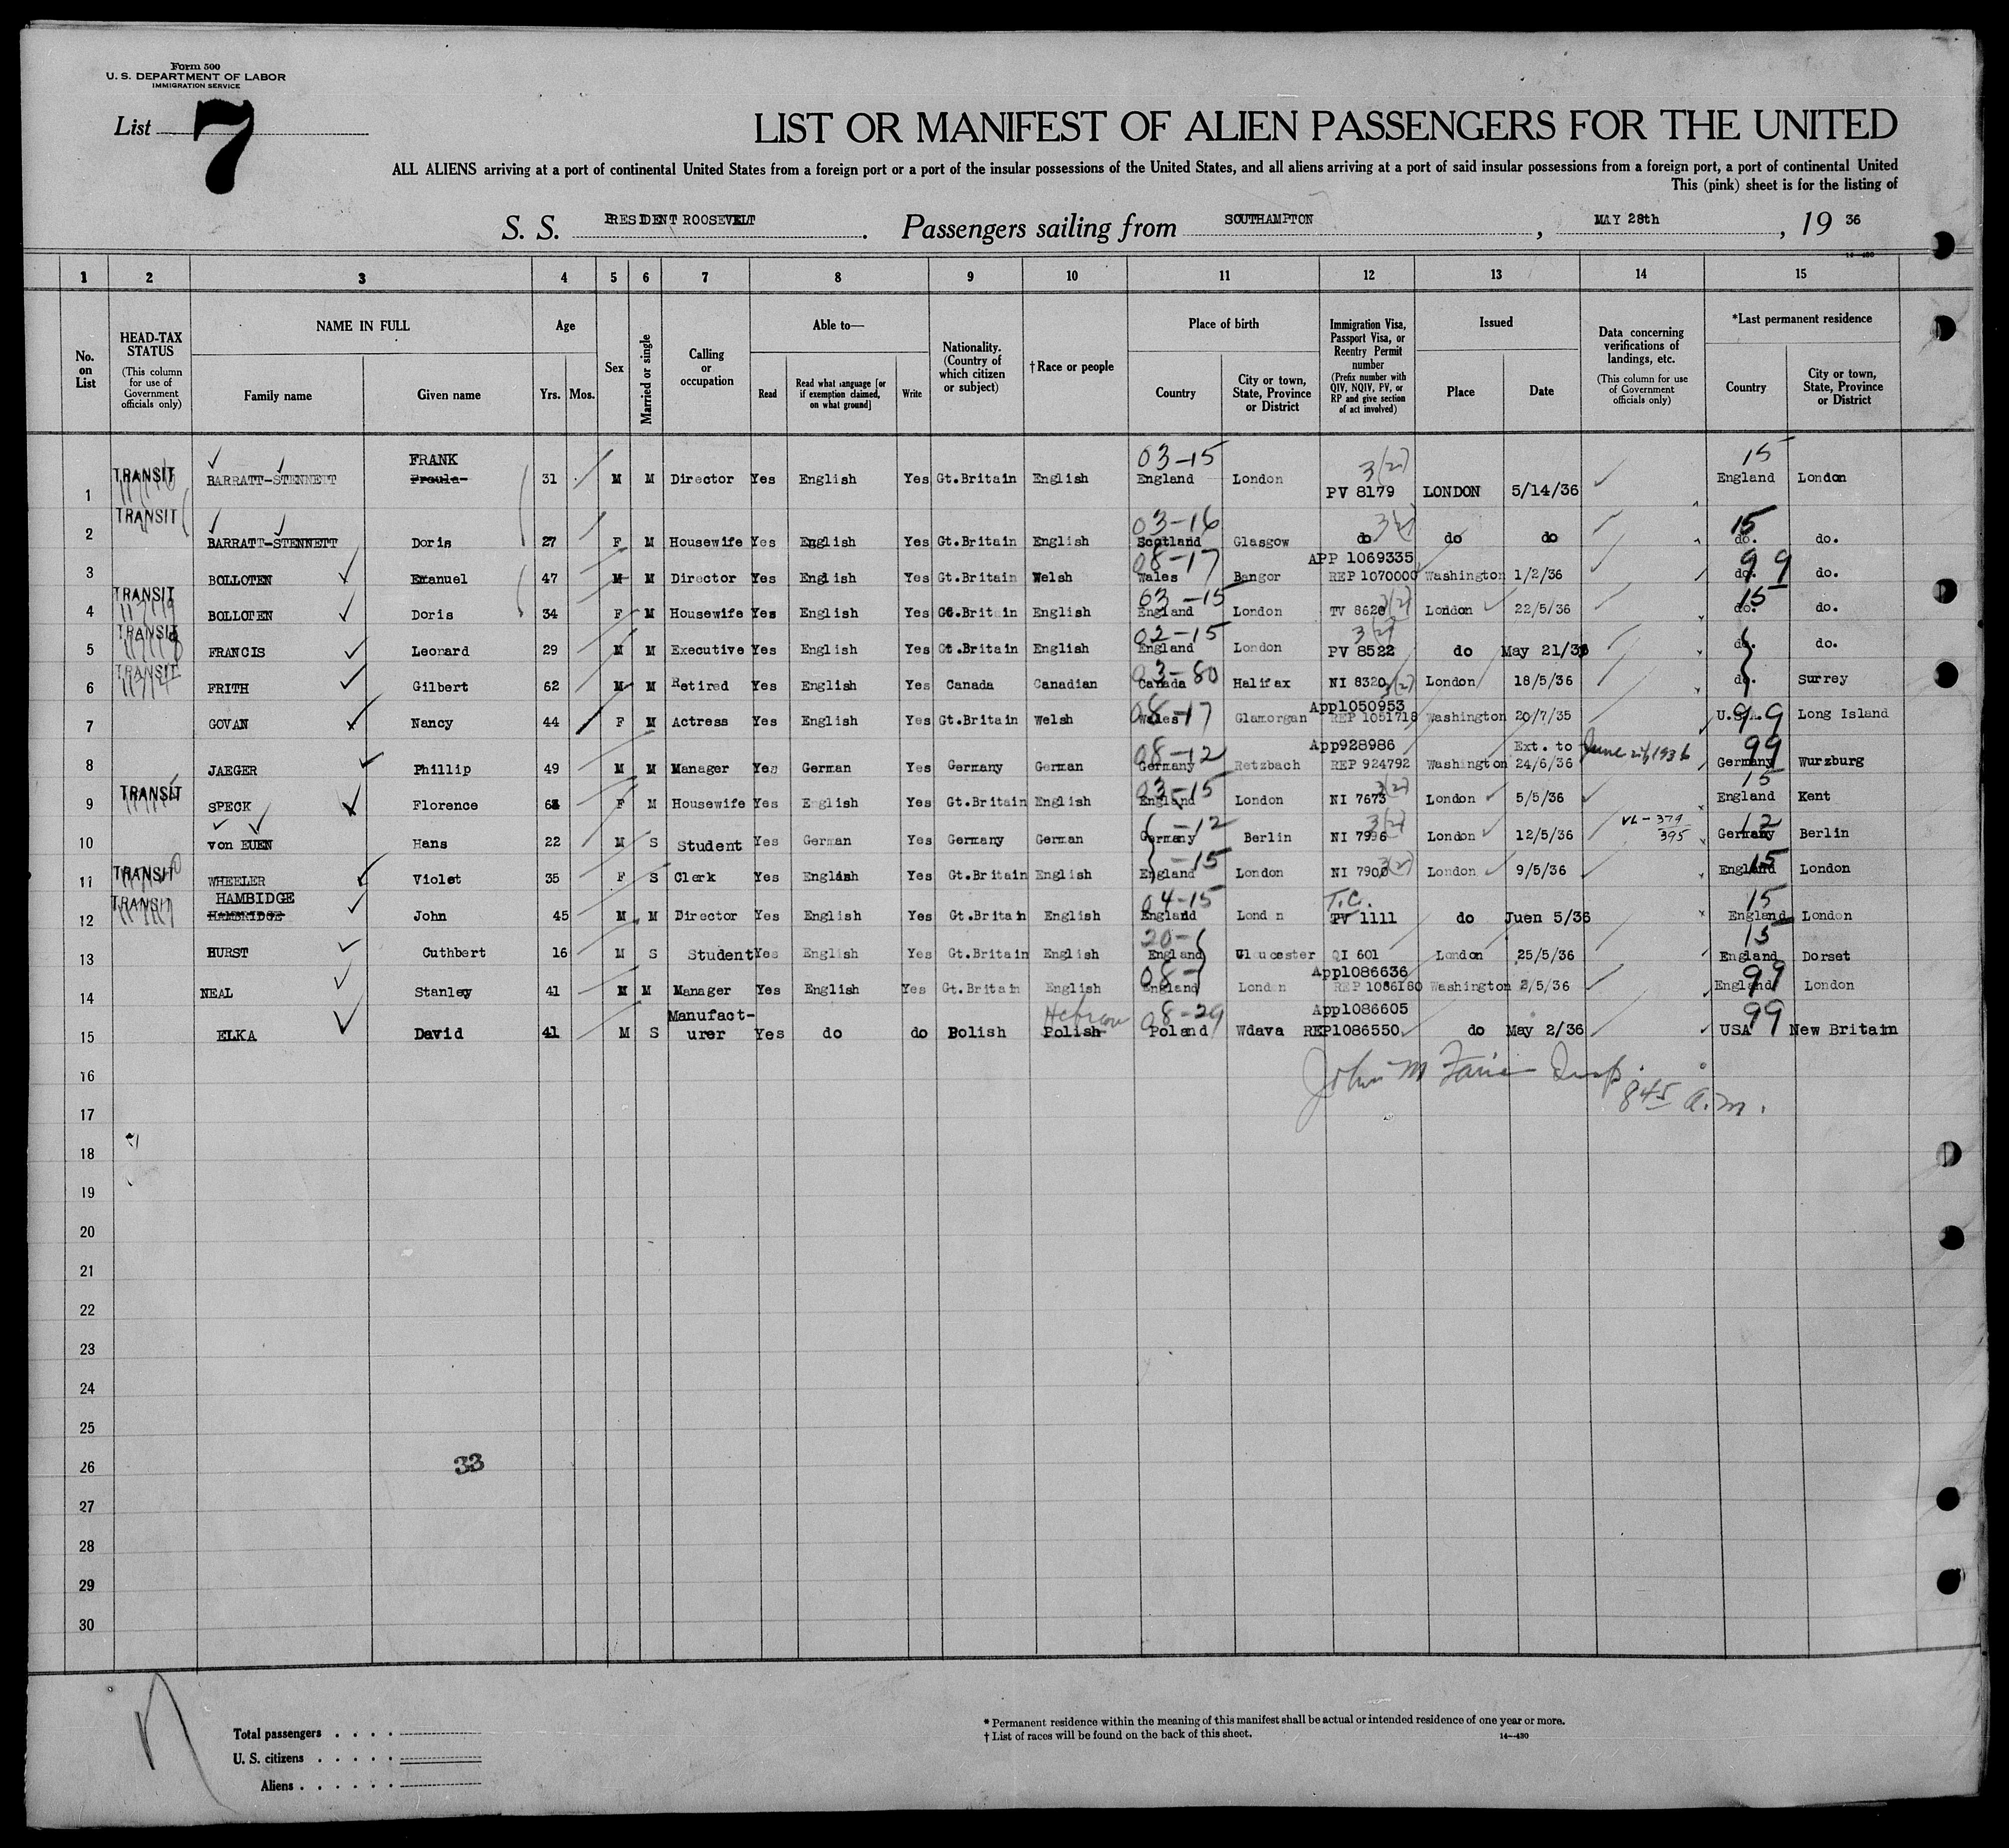 Form 500
U. S. DEPARTMENT OF LABOR
IMMIGRATION SERVICE
List 7
LIST OR MANIFEST OF ALIEN PASSENGERS FOR THE UNITED
ALL ALIENS arriving at a port of continental United States from a foreign port or a port of the insular possessions of the United States, and all aliens arriving at a port of said insular possessions from a foreign port, a port of continental United
This (pink) sheet is for the listing of
S. S. PRESIDENT ROOSEVELT . Passengers sailing from SOUTHAMPTON , MAY 28th , 19 36
14-430
1 2 3 4 5 6 7 8 9 10 11 12 13 14 15
No. on List
HEAD-TAX STATUS (This column for use of Government officials only)
NAME IN FULL
Family name Given name
Age
Yrs. Mos.
Sex
Married or single
Calling or occupation
Able to—
Read
Read what language [or if exemption claimed, on what ground]
Write
Nationality. (Country of which citizen or subject)
† Race or people
Place of birth
Country
City or town, State, Province or District
Immigration Visa, Passport Visa, or Reentry Permit number (Prefix number with QIV, NQIV, PV, or RP and give section of act involved)
Issued
Place Date
Data concerning verifications of landings, etc. (This column for use of Government officials only)
*Last permanent residence
Country
City or town, State, Province or District
FRANK 03-15 3(2) 15
1 TRANSIT BARRATT-STENNETT Proula 31 M M Director Yes English Yes Gt.Britain English England London PV 8179 LONDON 5/14/36 England London
03-16 3(2) 15
2 TRANSIT BARRATT-STENNETT Doris 27 F M Housewife Yes English Yes Gt.Britain English Scotland Glasgow do do do do. do.
08-17 APP 1069335 99
3 BOLLOTEN Emanuel 47 M M Director Yes English Yes Gt.Britain Welsh Wales Bangor REP 1070000 Washington 1/2/36 do. do.
03-15 3(2) 15
4 TRANSIT BOLLOTEN Doris 34 F M Housewife Yes English Yes Gt.Britain English England London TV 8620 London 22/5/36 do. do.
02-15 3(2)
5 TRANSIT FRANCIS Leonard 29 M M Executive Yes English Yes Gt.Britain English England London PV 8522 do May 21/36 do. do.
03-80 3(2)
6 TRANSIT FRITH Gilbert 62 M M Retired Yes English Yes Canada Canadian Canada Halifax NI 8320 London 18/5/36 do. Surrey
08-17 App1050953 99
7 GOVAN Nancy 44 F M Actress Yes English Yes Gt.Britain Welsh Wales Glamorgan REP 1051718 Washington 20/7/35 U.S.A. Long Island
08-12 App928986 Ext. to June 24, 1936 99
8 JAEGER Phillip 49 M M Manager Yes German Yes Germany German Germany Retzbach REP 924792 Washington 24/6/36 Germany Wurzburg
03-15 3(2) 15
9 TRANSIT SPECK Florence F M Housewife Yes English Yes Gt.Britain English England London NI 7673 London 5/5/36 England Kent
-12 3(2) VL-379/395 12
10 von EUEN Hans 22 M S Student Yes German Yes Germany German Germany Berlin NI 7996 London 12/5/36 Germany Berlin
-15 3(2) 15
11 TRANSIT WHEELER Violet 35 F S Clerk Yes English Yes Gt.Britain English England London NI 7900 London 9/5/36 England London
HAMBIDGE 04-15 T.C. 15
12 TRANSIT HAMBRIDGE John 45 M M Director Yes English Yes Gt.Britain English England Lond n PV 1111 do Juen 5/36 England London
20- 15
13 HURST Cuthbert 16 M S Student Yes English Yes Gt.Britain English England Gloucester QI 601 London 25/5/36 England Dorset
08- App1086636 99
14 NEAL Stanley 41 M M Manager Yes English Yes Gt.Britain English England London REP 1086180 Washington 2/5/36 England London
Manufact- Hebrew 08-29 App1086605 99
15 ELKA David 41 M S urer Yes do do Polish Polish Poland Wdava REP1086550 do May 2/36 USA New Britain
16
17 8 45 a.m.
18
19
20
21
22
23
24
25
26 33
27
28
29
30
Total passengers . . . .
U. S. citizens . . . . .
Aliens . . . . . .
* Permanent residence within the meaning of this manifest shall be actual or intended residence of one year or more.
† List of races will be found on the back of this sheet.
14—430